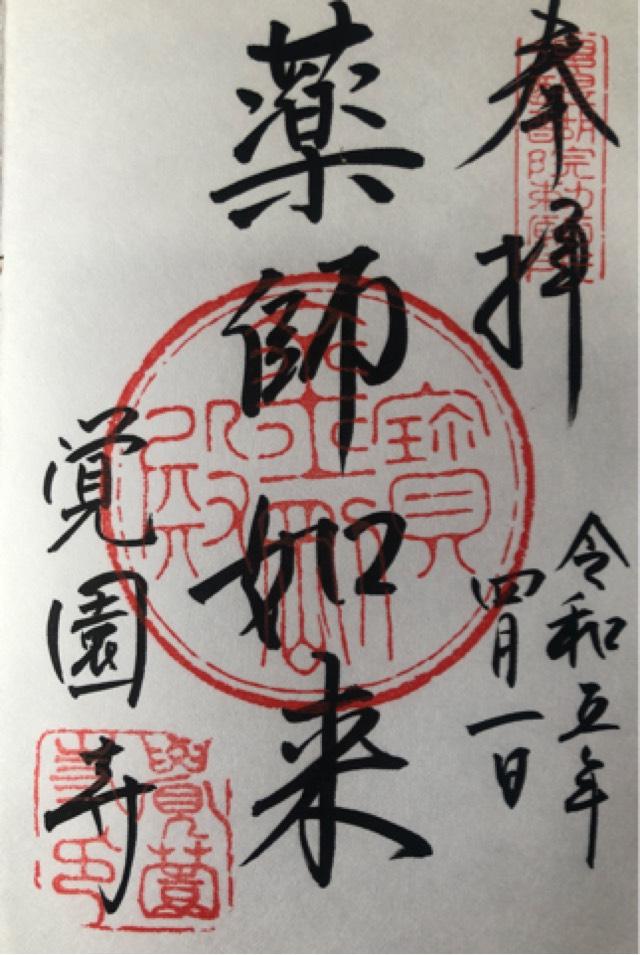 奉拝
令和五年
四月一日
薬師如来
覚園寺